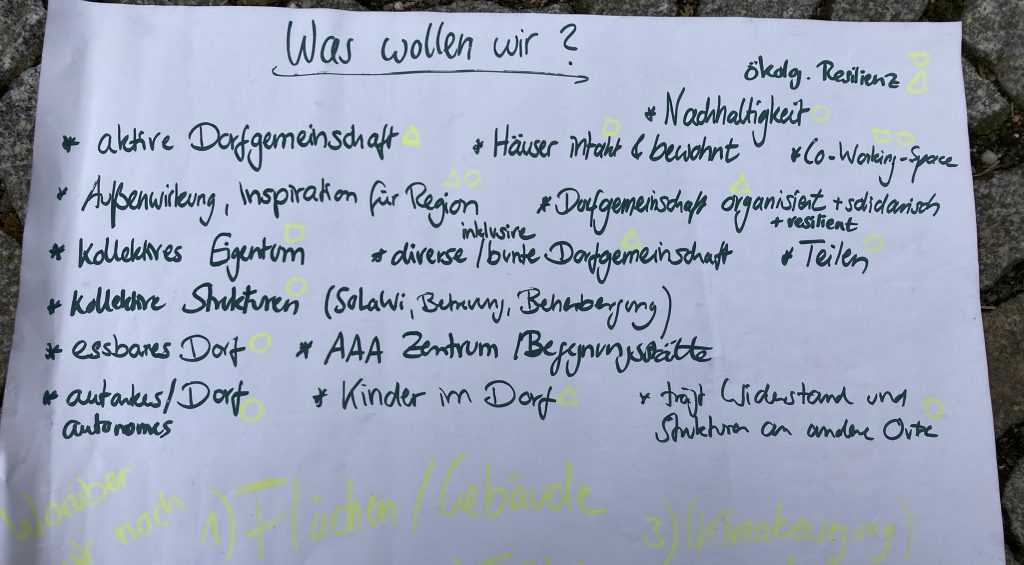 Was wollen wir?
ökolg. Resilienz
* Nachhaltigkeit
* aktive Dorfgemeinschaft
* Häuser intakt & bewohnt
* Co-Working-Space
* Außenwirkung, Inspiration für Region
* Dorfgemeinschaft organisiert + solidarisch
+ resilient
* Kollektives Eigentum
inklusive
* diverse/bunte Dorfgemeinschaft
* Teilen
* Kollektive Strukturen (SoLaWi, Betreuung, Beherbergung)
* essbares Dorf
* AAA Zentrum/Begegnungsstätte
* autarkes/Dorf
autonomes
* Kinder im Dorf
* trägt Widerstand und
Strukturen an andere Orte
Worüber
noch
1) Flächen/Gebäude
3)